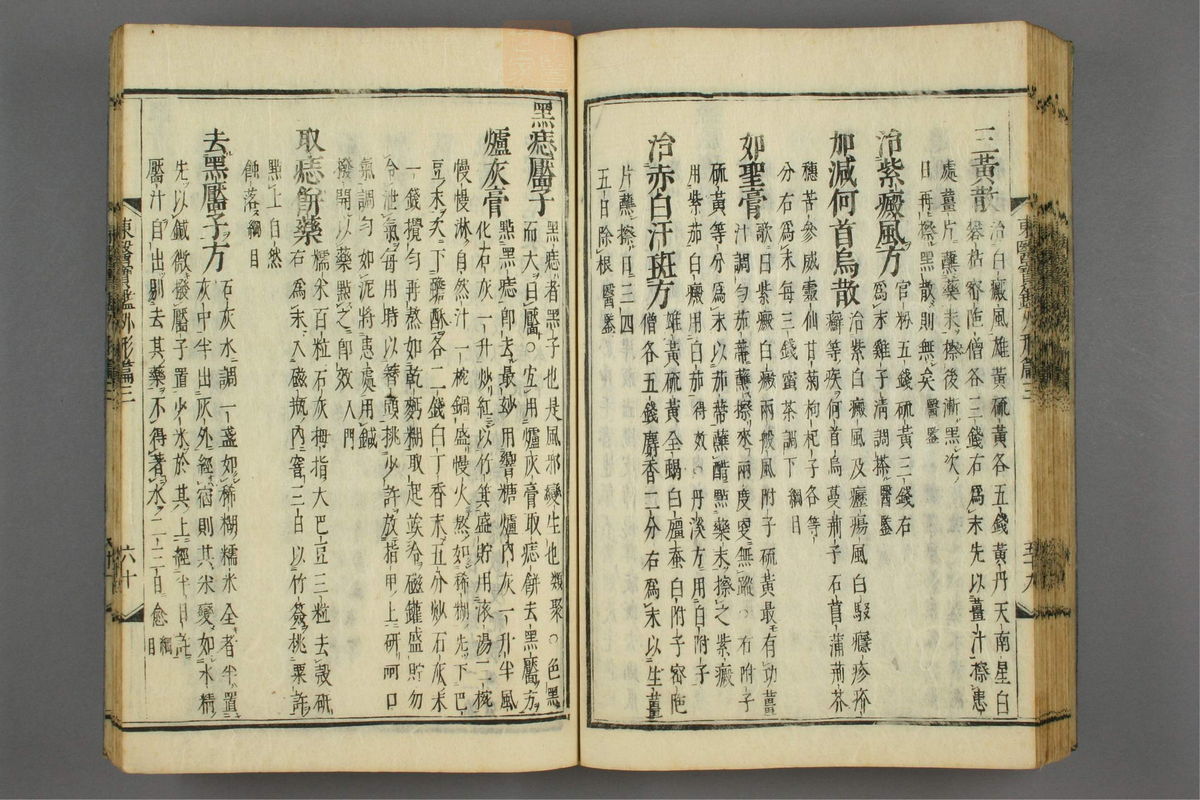 三黃散 治白癜風雄黃硫黃各五錢黃丹天南星白
礬枯密陀僧各三錢右爲末先以薑汁擦患
處薑片蘸藥末擦後漸黑次
日再擦黑散則無矣 醫鑑
治紫癜風方 官粉五錢硫黃三錢右
爲末雞子淸調搽 醫鑑
加減何首烏散 治紫白癜風及癧瘍風白駁癮疹疥
癬等疾何首烏蔓荊子石菖蒲荊芥
穗苦參威靈仙甘菊枸杞子各等
分右爲末每三錢蜜茶調下 綱目
如聖膏 歌曰紫癜白癜兩般風附子硫黃最有功薑
汁調勻茄蔕蘸擦來兩度更無蹤○右附子
硫黃等分爲末以茄蔕蘸醋點藥末擦之紫癜
用紫茄白癜用白茄 得效 丹溪方用白附子
治赤白汗斑方 雄黃硫黃全蝎白殭蚕白附子密陀
僧各五錢麝香二分右爲末以生薑
片蘸擦日三四
五日除根 醫鑑
東醫寶鑑外形篇三 五十九
黑痣靨子 黑痣者黑子也是風邪變生也 類聚 ○色黑
而大曰靨○宜用爐灰膏取痣餠去黑靨方
爐灰膏 點黑痣卽去最妙用響糖爐內灰一升半風
化石灰一升炒紅以竹箕盛貯用滚湯二椀
慢慢淋自然汁一椀鍋盛慢火熬如稀糊先下巴
豆末次下蟾酥各二錢白丁香末五分炒石灰末
一錢攪勻再熬如乾麪糊取起候冷磁罐盛貯勿
令泄氣每用時以簪頭挑少許放指甲上硏呵口
氣調勻如泥將患處用鍼
撥開以藥點之卽效 入門
取痣餠藥 糯米百粒石灰拇指大巴豆三粒去殼硏
右爲末入磁瓶內窨三日以竹簽挑粟許
點上自然
蝕落 綱目
去黑靨子方 石灰水調一盞如稀糊糯米全者半置
灰中半出灰外經宿則其米變如水精
先以鍼微撥靨子置少米於其上經半日許
靨汁自出則去其藥不得著水二三日愈 綱目
東醫寶鑑外形篇三 六十